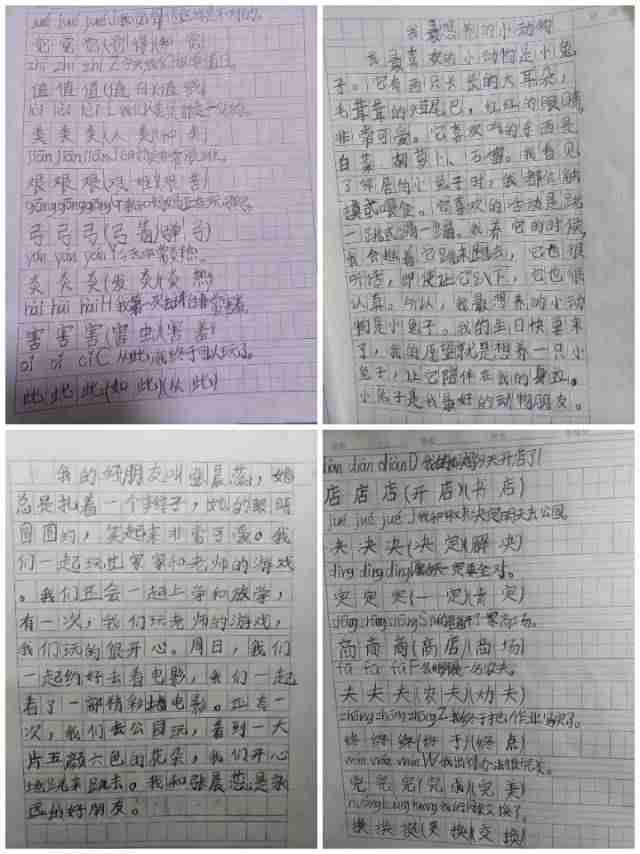 jué jué jué J
觉 觉 觉(觉 得)(知 觉)
zhí zhí zhí Z
值 值 值(值 日)(值 班)
lèi lèi lèi L
类 类 类(人 类)(种 类)
jiān jiān jiān J
艰 艰 艰(艰 难)(艰 苦)
gōng gōng gōng
弓 弓 弓(弓 箭)(弹 弓)
yán yán yán Y
炎 炎 炎(发 炎)(炎 热)
hài hài hài H 我第一次
害 害 害(害 虫)(害 羞)
cǐ cǐ cǐ C 从此,我终于
此 此 此(如 此)(从 此)
我最想养的小动物
我最喜欢的小动物是小兔
子。它有两只长长的大耳朵,
毛茸茸的短尾巴,红红的眼睛,
非常可爱。它喜欢吃的东西是
白菜、胡萝卜、石榴。我看见
了邻居的小兔子时,我都会
摸它喂食。它喜欢的活动是跳
一跳
我会
听话,即使让它趴下,它也很
认真。所以,我最想养的小动
物是小兔子。我的生日快要来
了,我的愿望就是想养一只小
兔子,让它陪伴在我的身边。
小兔子是我最好的动物朋友。
我的好朋友叫张晨蕊,她
总是扎着一个辫子,她的眼睛
圆圆的,笑起来非常可爱。我
们一起玩过家家和老师的游戏
。我们还会一起上学和放学,
有一次,我们玩老师的游戏,
我们玩的很开心。周日,我们
一起约好去看电影,我们一起
看了一部精彩的电影。还有一
次,我们去公园玩,看到一大
片五颜六色的花朵,我们开心
地跳来跳去。我和张晨蕊是永
远的好朋友。
diàn diàn diàn D 我的 今天开店了!
店 店 店(开 店)(书 店)
jué jué jué J 我和 决定明天去公园。
决 决 决(决 定)(解 决)
dìng dìng dìng 一定要全对。
定 定 定(一 定)(肯 定)
shāng shāng shāng S
商 商 商(商 店)(商 场)
fū fū fū F
夫 夫 夫(农 夫)(功 夫)
zhōng zhōng zhōng Z 我终于把作业写完了。
终 终 终(终 于)(终 点)
wán wán wán W 我
完 完 完(完 成)(完 美)
huàn huàn huàn
换 换 换(更 换)(交 换)